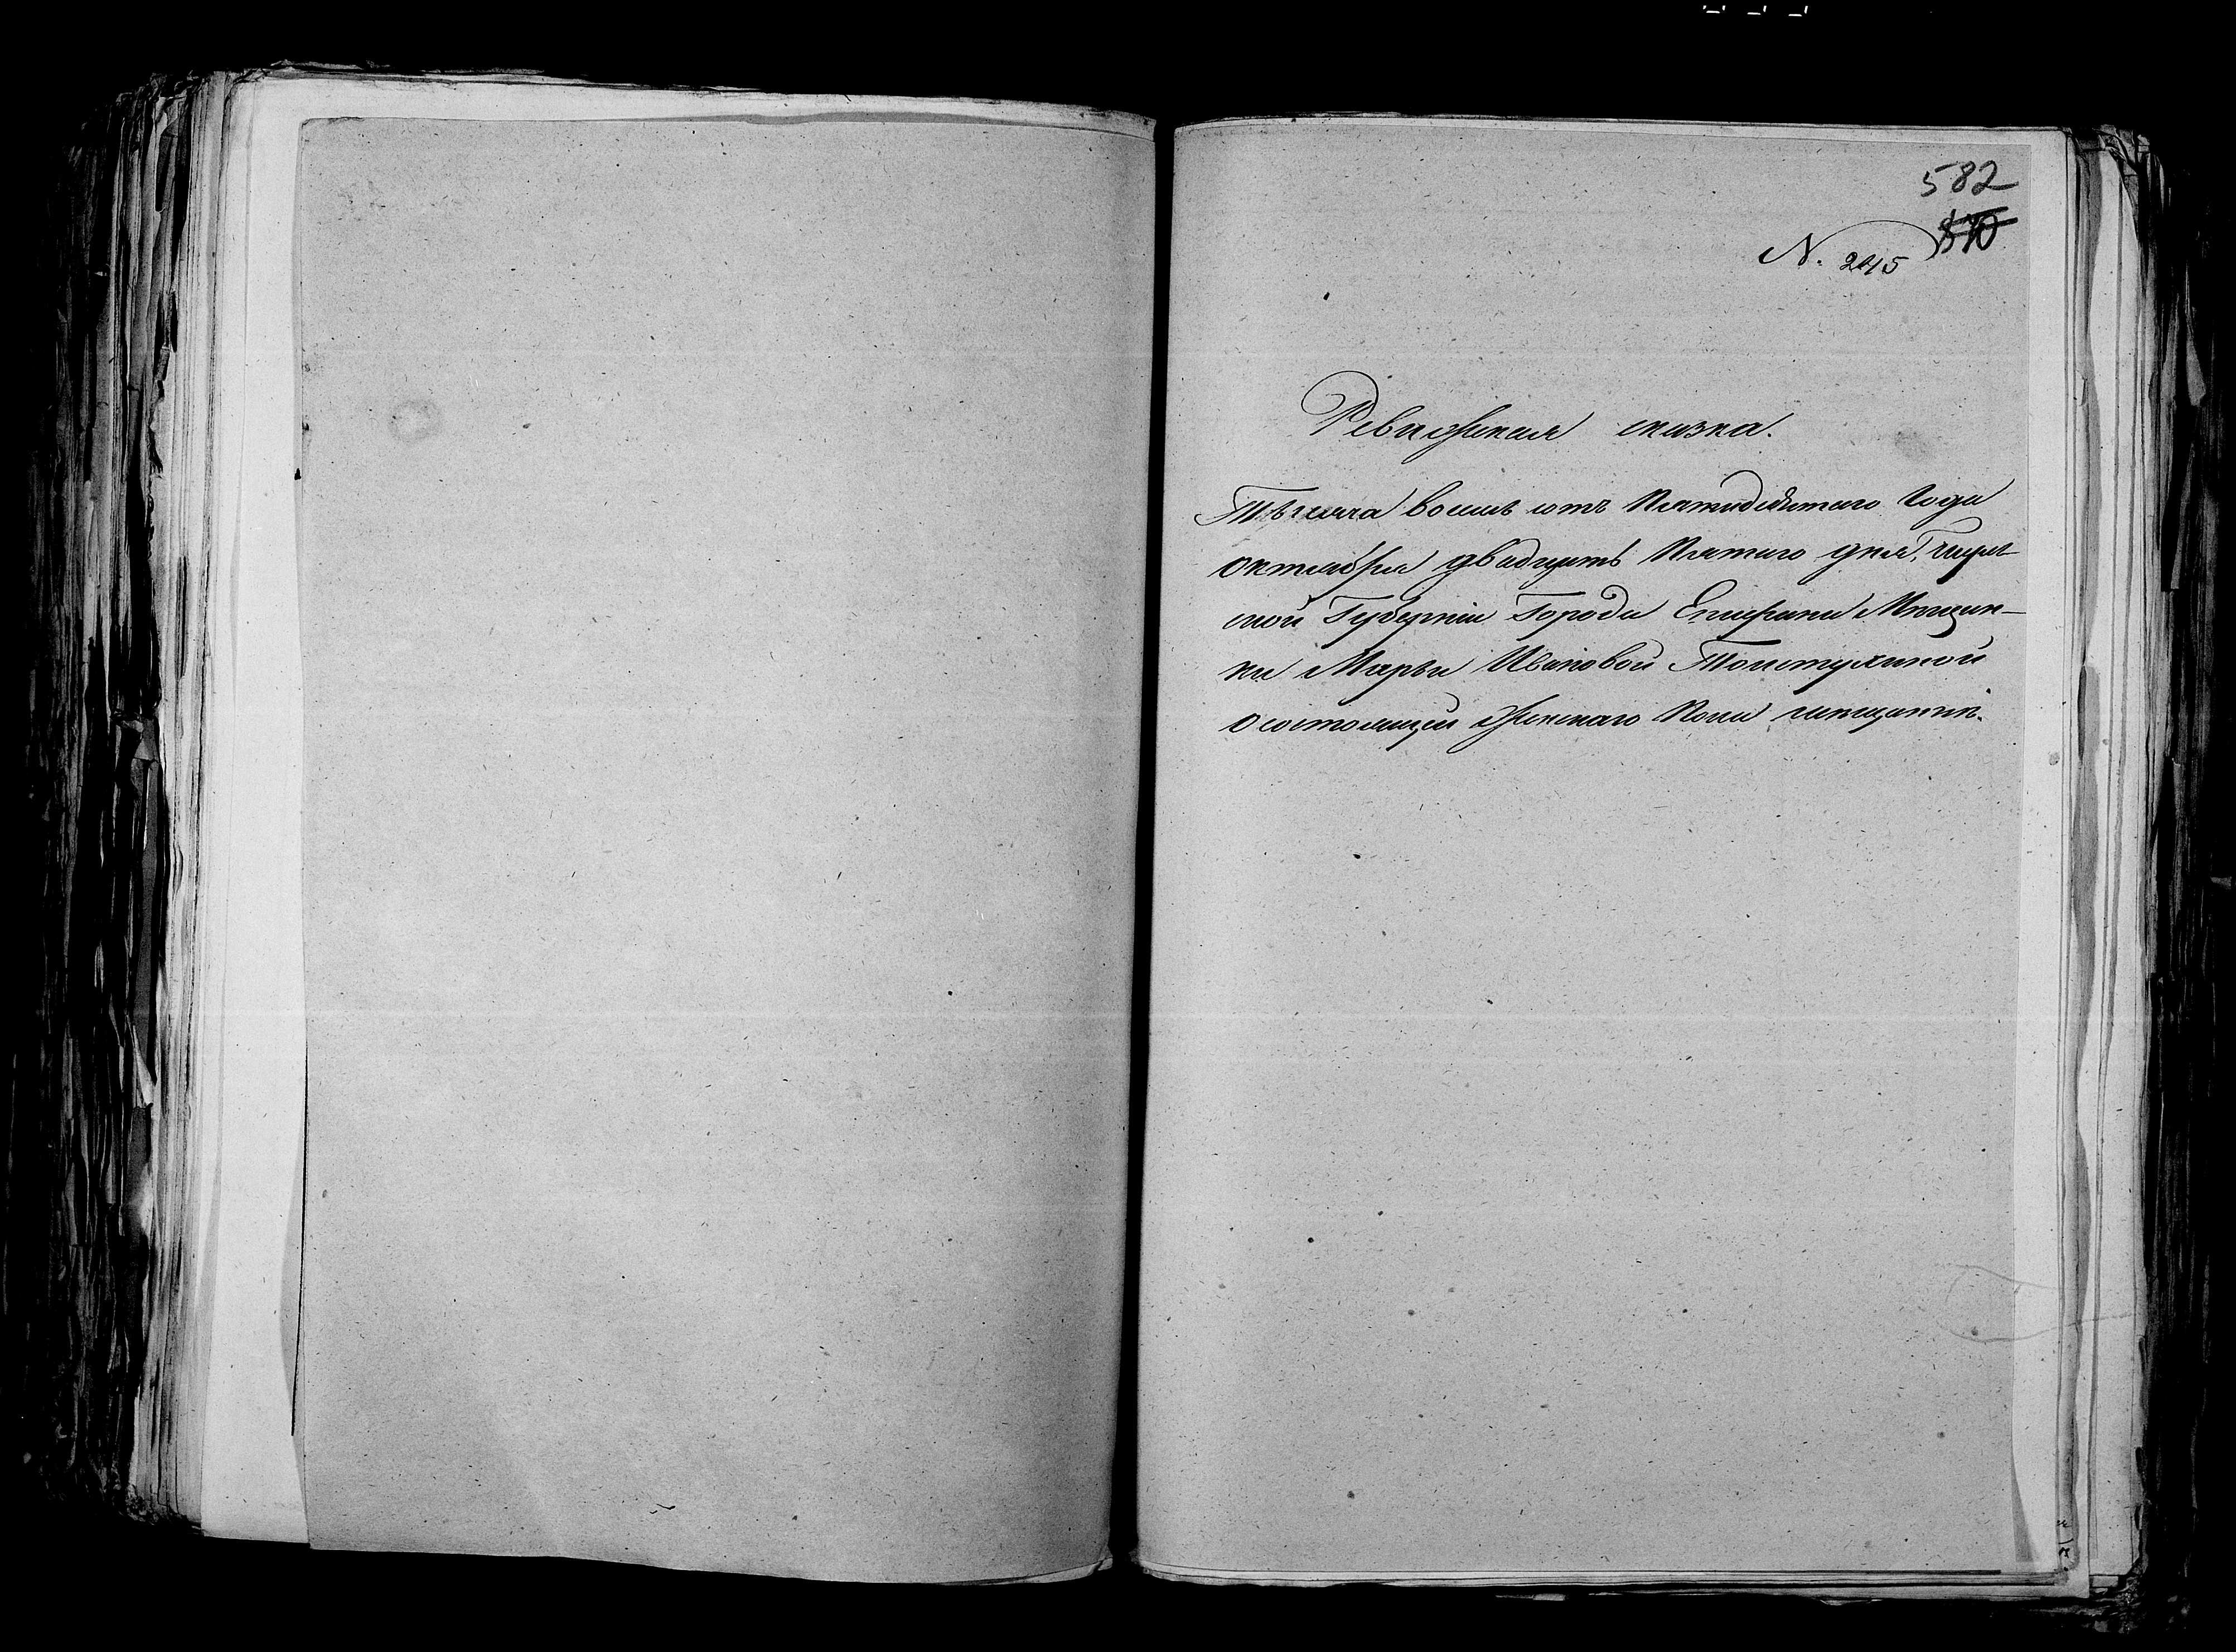 582
870
N. 245
Ревижская сказка.
Тысяча восемь сотъ Пятидесятаго Года
октября двадцать Пятаго дня, Туль-
ской Губернии Города Епифани Мещан-
ки Марьи Ивановой Толстухиной
о состоящей женскаго Пола